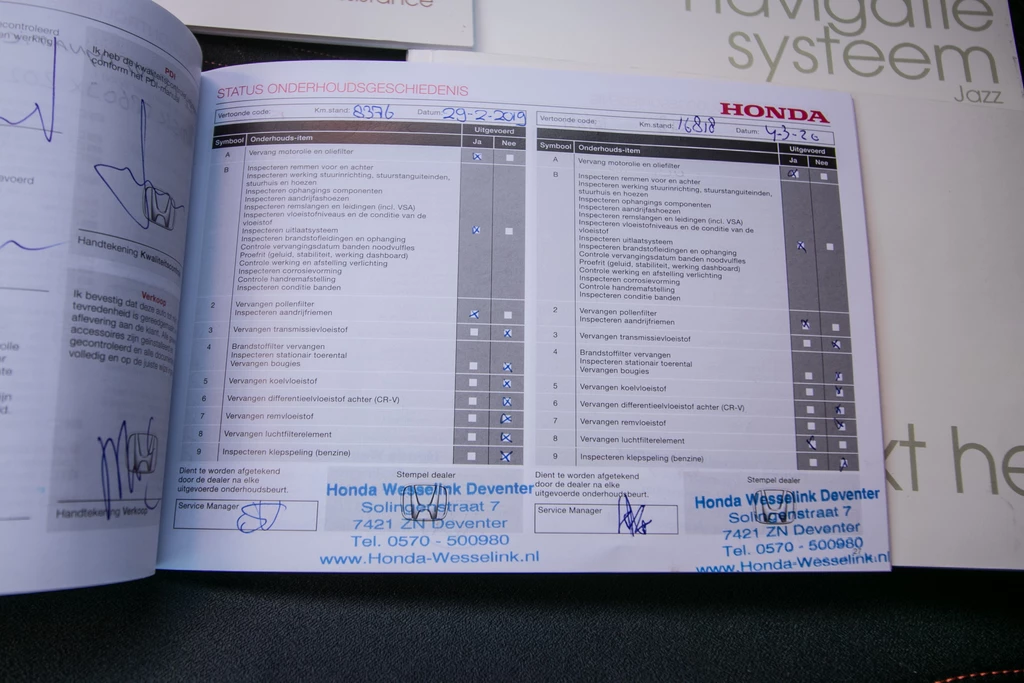 navigatie
systeem
Jazz
kt he
Ik heb de
conform het PDI-
PDI
Handtekening Kwaliteits
Verkoop
Ik bevestig dat deze auto
tevredenheid is
aflevering aan de klant.
accessoires zijn
gecontroleerd en alle
volledig en op de juiste
Handtekening Verkoop
STATUS ONDERHOUDSGESCHIEDENIS
HONDA
Vertoonde code: Km.stand: 8376 Datum: 29-2-2019
Symbool Onderhouds-item Uitgevoerd Ja Nee
A Vervang motorolie en oliefilter
B Inspecteren remmen voor en achter
Inspecteren werking stuurinrichting, stuurstanguiteinden,
stuurhuis en hoezen
Inspecteren ophangings componenten
Inspecteren aandrijfashoezen
Inspecteren remslangen en leidingen (incl. VSA)
Inspecteren vloeistofniveaus en de conditie van de
vloeistof
Inspecteren uitlaatsysteem
Inspecteren brandstofleidingen en ophanging
Controle vervangingsdatum banden noodvulfles
Proefrit (geluid, stabiliteit, werking dashboard)
Controle werking en afstelling verlichting
Inspecteren corrosievorming
Controle handremafstelling
Inspecteren conditie banden
2 Vervangen pollenfilter
Inspecteren aandrijfriemen
3 Vervangen transmissievloeistof
4 Brandstoffilter vervangen
Inspecteren stationair toerental
Vervangen bougies
5 Vervangen koelvloeistof
6 Vervangen differentieelvloeistof achter (CR-V)
7 Vervangen remvloeistof
8 Vervangen luchtfilterelement
9 Inspecteren klepspeling (benzine)
Dient te worden afgetekend
door de dealer na elke
uitgevoerde onderhoudsbeurt.
Service Manager
Stempel dealer
Honda Wesselink Deventer
Solingenstraat 7
7421 ZN Deventer
Tel. 0570 - 500980
www.Honda-Wesselink.nl
Vertoonde code: Km.stand: 16818 Datum: 4-3-20
Symbool Onderhouds-item Uitgevoerd Ja Nee
A Vervang motorolie en oliefilter
B Inspecteren remmen voor en achter
Inspecteren werking stuurinrichting, stuurstanguiteinden,
stuurhuis en hoezen
Inspecteren ophangings componenten
Inspecteren aandrijfashoezen
Inspecteren remslangen en leidingen (incl. VSA)
Inspecteren vloeistofniveaus en de conditie van de
vloeistof
Inspecteren uitlaatsysteem
Inspecteren brandstofleidingen en ophanging
Controle vervangingsdatum banden noodvulfles
Proefrit (geluid, stabiliteit, werking dashboard)
Controle werking en afstelling verlichting
Inspecteren corrosievorming
Controle handremafstelling
Inspecteren conditie banden
2 Vervangen pollenfilter
Inspecteren aandrijfriemen
3 Vervangen transmissievloeistof
4 Brandstoffilter vervangen
Inspecteren stationair toerental
Vervangen bougies
5 Vervangen koelvloeistof
6 Vervangen differentieelvloeistof achter (CR-V)
7 Vervangen remvloeistof
8 Vervangen luchtfilterelement
9 Inspecteren klepspeling (benzine)
Dient te worden afgetekend
door de dealer na elke
uitgevoerde onderhoudsbeurt.
Service Manager
Stempel dealer
Honda Wesselink Deventer
Solingenstraat 7
7421 ZN Deventer
Tel. 0570 - 500980
www.Honda-Wesselink.nl